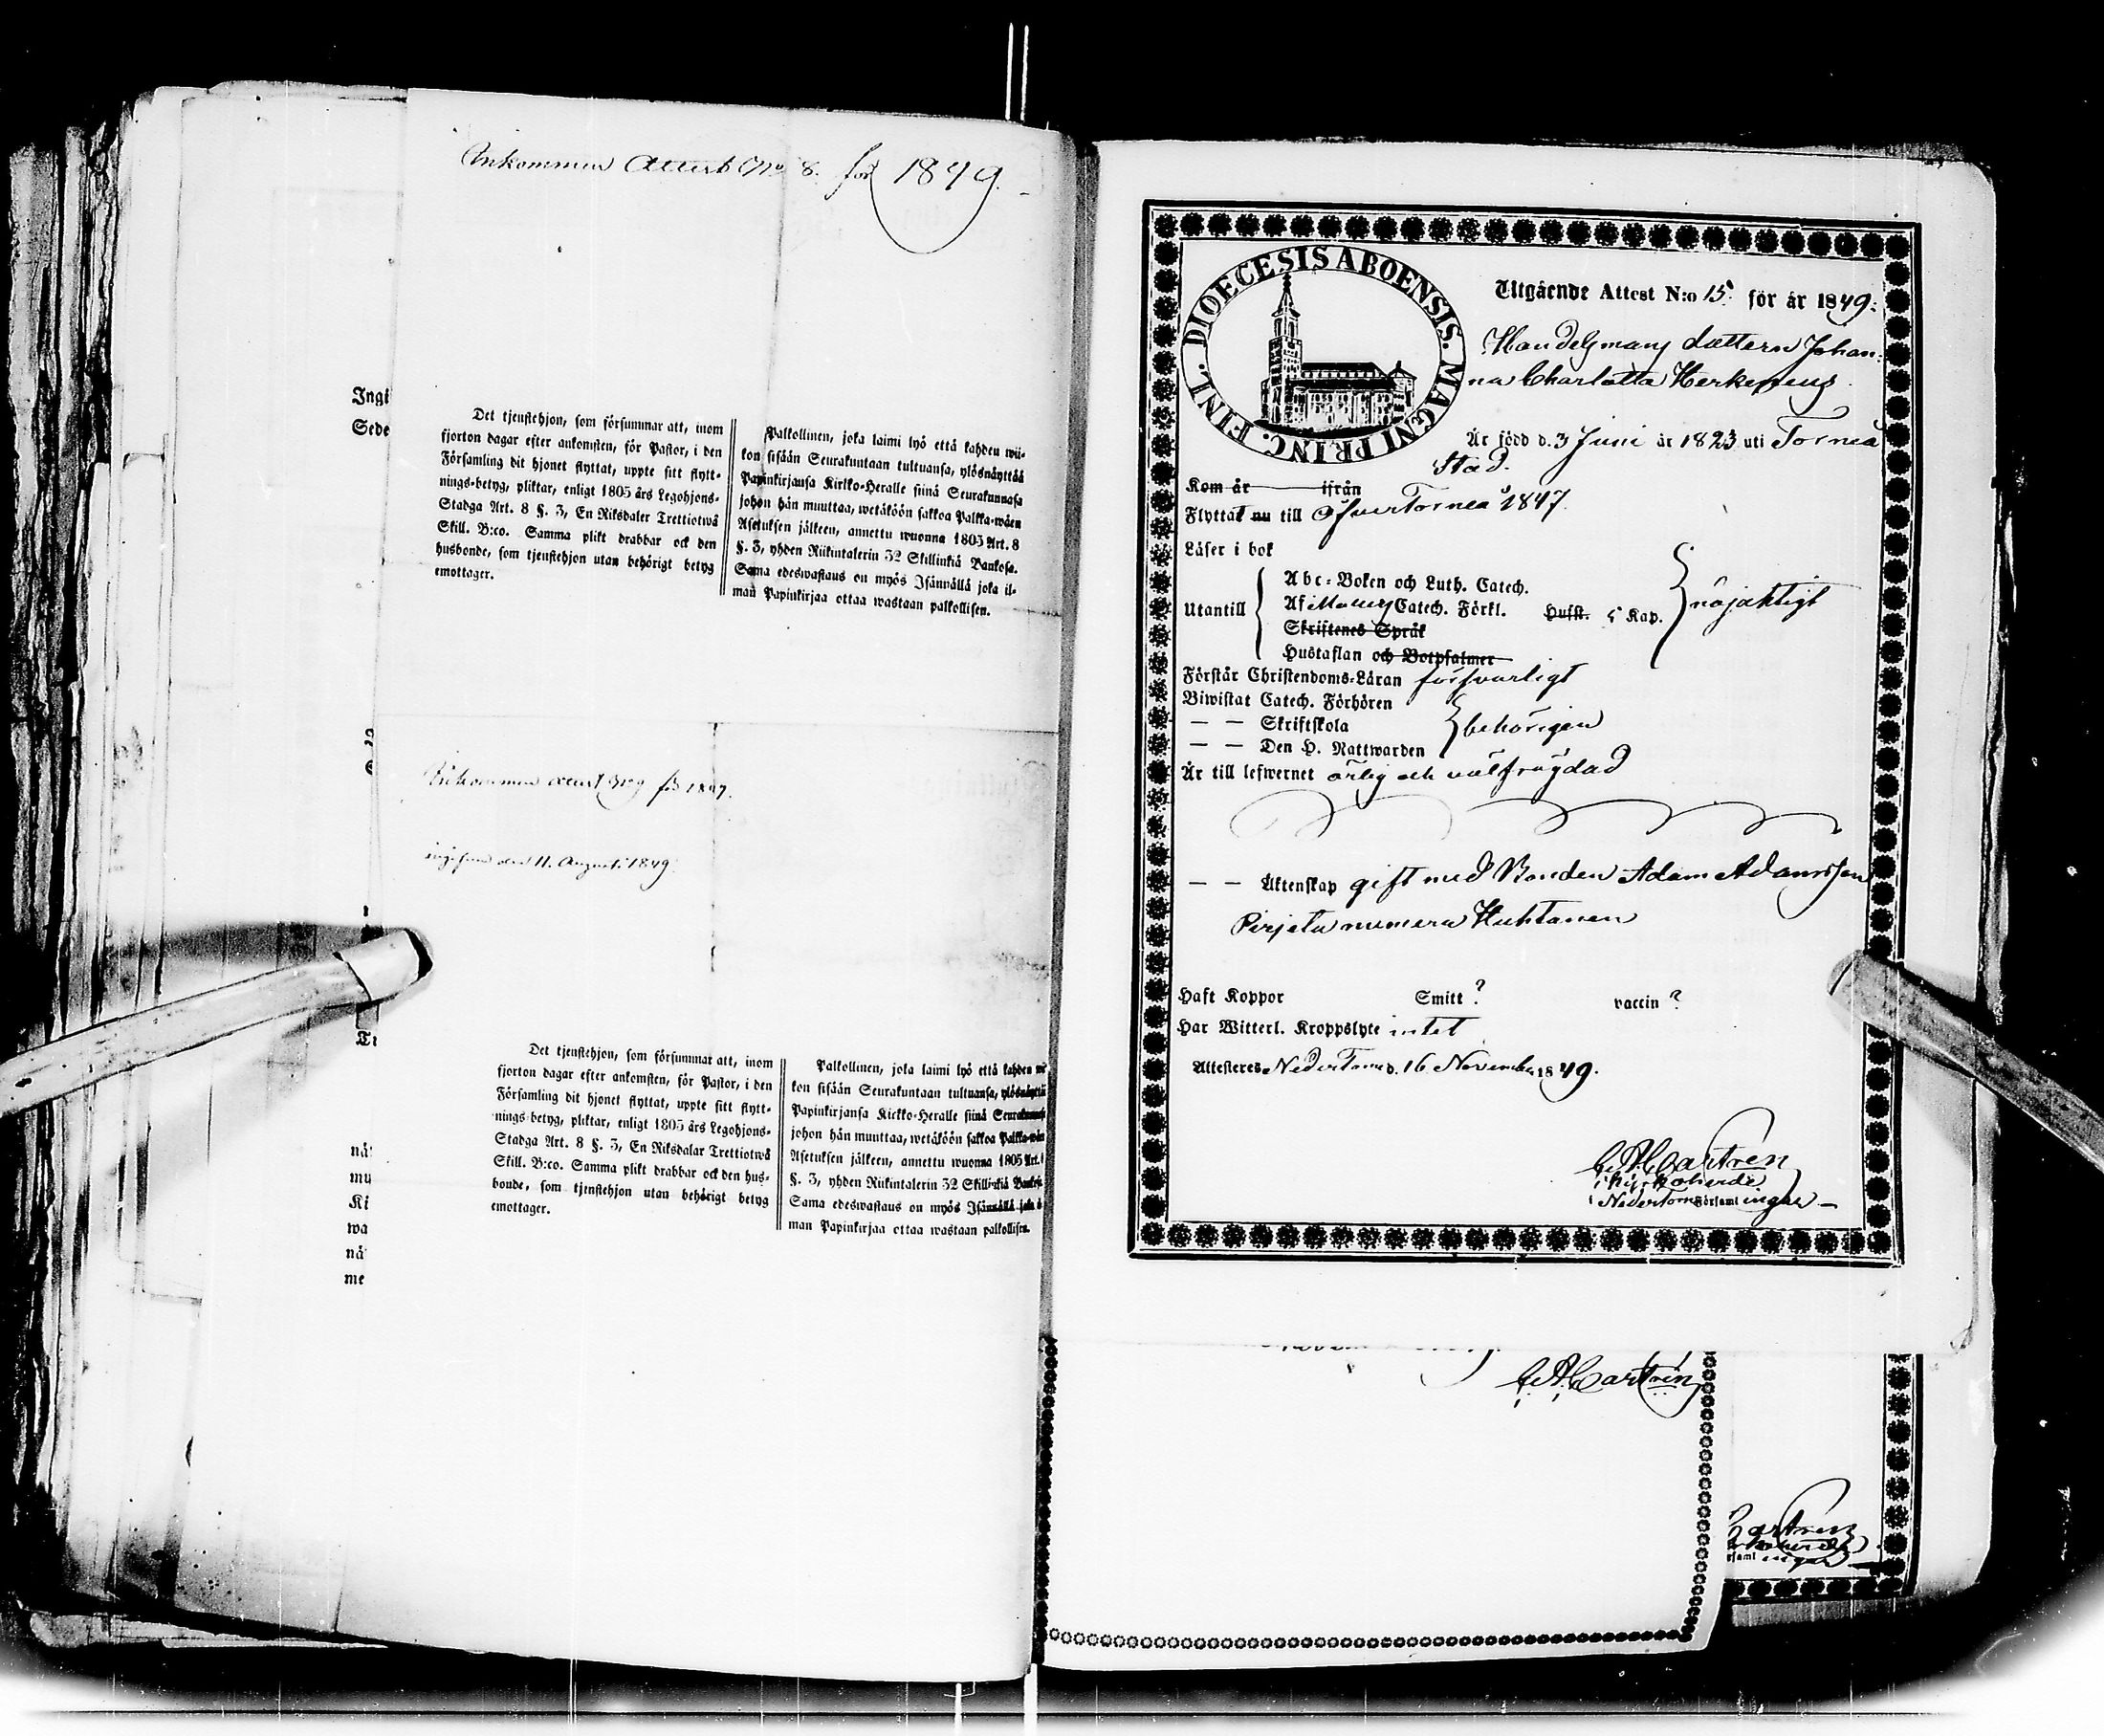 Inkommen Attest No 8. för 1849.
Ingi
Sede
Det tjenstehjon, som försummar att, inom
fjorton dagar efter ankomsten, för Pastor, i den
Församling dit hjonet flyttat, uppte sitt flytt-
nings-betyg, pliktar, enligt 1805 års Legohjons-
Stadga Art. 8 §. 3, En Riksdaler Trettiotwå
Skill. B:co. Samma plikt drabbar ock den
husbonde, som tjenstehjon utan behörigt betyg
emottager.
Palkollinen, joka laimi lyö että kahden wii-
kon sisään Seurakuntaan tultuansa, ylösnäyttää
Papinkirjansa Kirkko-Heralle siinä Seurakunnasa
johon hän muuttaa, wetäköön sakkoa Palkka-wäen
Asetuksen jälkeen, annettu wuonna 1805 Art. 8
§. 3, yhden Riikintalerin 32 Skillinkiä Bankosa.
Sama edeswastaus on myös Isännällä joka il-
man Papinkirjaa ottaa wastaan palkollisen.
Inkommen attest No 9 för 1847.
den 11. Augusti 1849.
Det tjenstehjon, som försummar att, inom
fjorton dagar efter ankomsten, för Pastor, i den
Församling dit hjonet flyttat, uppte sitt flytt-
nings-betyg, pliktar, enligt 1805 års Legohjons-
Stadga Art. 8 §. 3, En Riksdalar Trettiotwå
Skill. B:co. Samma plikt drabbar ock den hus-
bonde, som tjenstehjon utan behörigt betyg
emottager.
Palkollinen, joka laimi lyö että kahden wii
kon sisään Seurakuntaan tultuansa, ylösnäyttä
Papinkirjansa Kirkko-Heralle siinä Seurakunnasa
johon hän muuttaa, wetäköön sakkoa Palkka-wäen
Asetuksen jälkeen, annettu wuonna 1805 Art.
§. 3, yhden Riikintalerin 32 Skillinkiä Bankosa
Sama edeswastaus on myös Isännällä joka
man Papinkirjaa ottaa wastaan palkollisen.
nä
mu
Ki
wa
nä
me
DIOECESIS ABOENSIS. MAGNI PRINC. FINL.
Utgående Attest N:o 15. för år 1849.
Handelsmans dottern Johan-
na Charlotta
Är född d. 3 Juni år 1823 uti Torneå
Stad.
Kom år ifrån
Flyttat nu till ÖfverTorneå 1847.
Läser i bok
Utantill
Abc-Boken och Luth. Catech.
Af Catech. Förkl. Hufst. 5 Kap.
nöjaktigt
Skriftenes Språk
Hustaflan och Botpsalmer
Förstår Christendoms-Läran försvarligt
Biwistat Catech. Förhören
— — Skriftskola behörigen
— — Den H. Nattwarden
Är till lefwernet ärlig och välfrägdad
— — Äktenskap gift med Bonden Adam Adamsson
Pirjeta numera Huhtanen
Haft Koppor Smitt ? vaccin ?
Har Witterl. Kroppslyte intet
Attesteres NederTorneå d. 16 November 1849.
Castrén
kyrkoherde
i Nedertorneå Församlingar
Castrén
Castrén
ingar